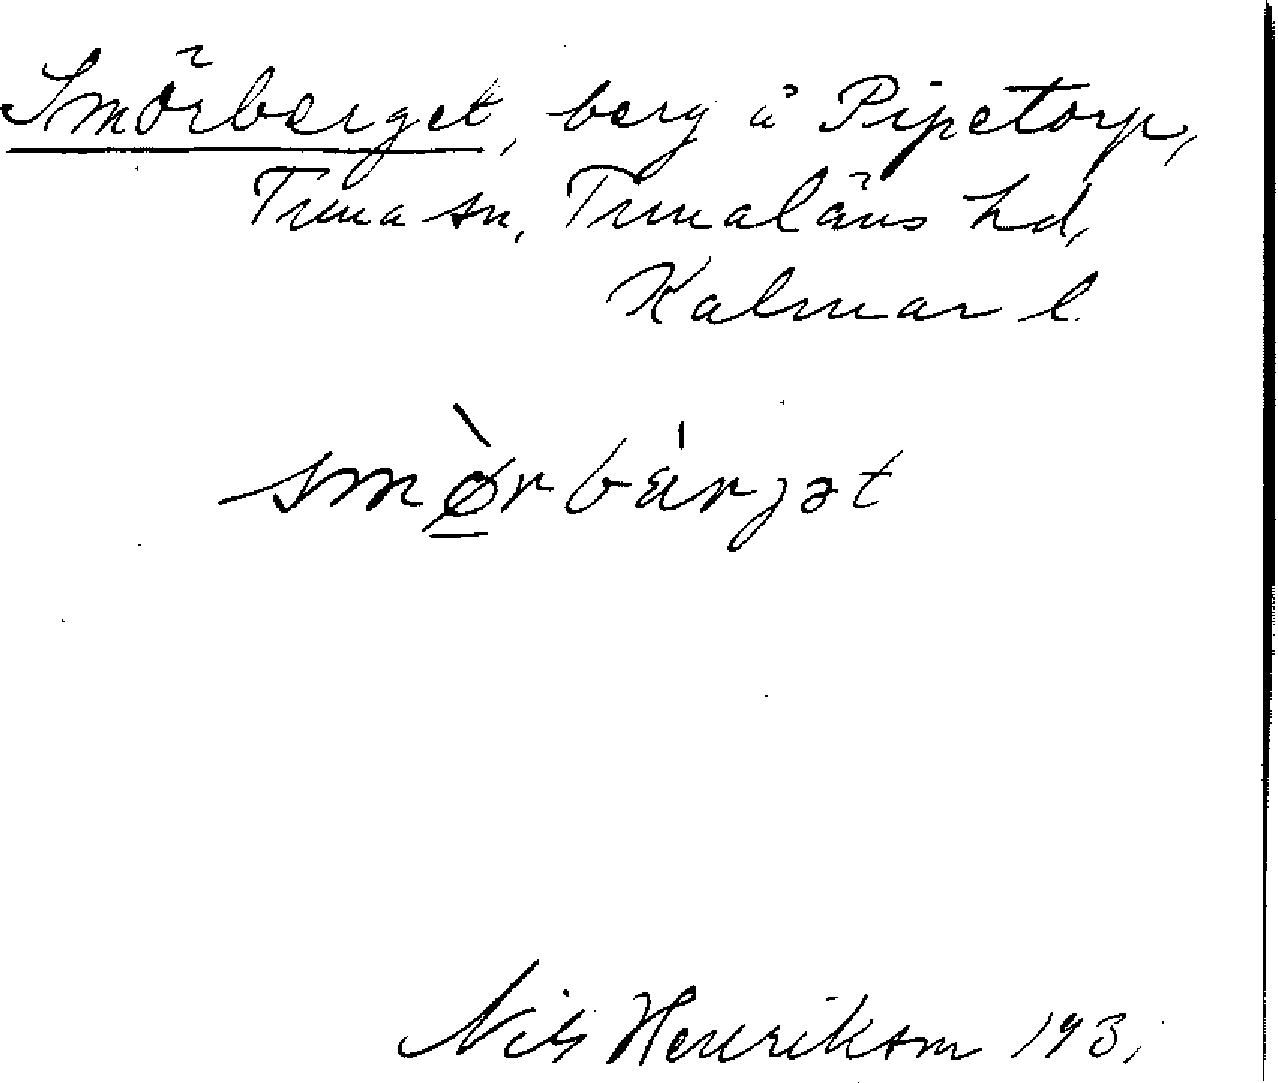 Smörberget, berg å Pipetorp,
Tuna sn, Tunaläns hd,
Kalmar l.
smø̀rbárjət
Nils Henrikson 193